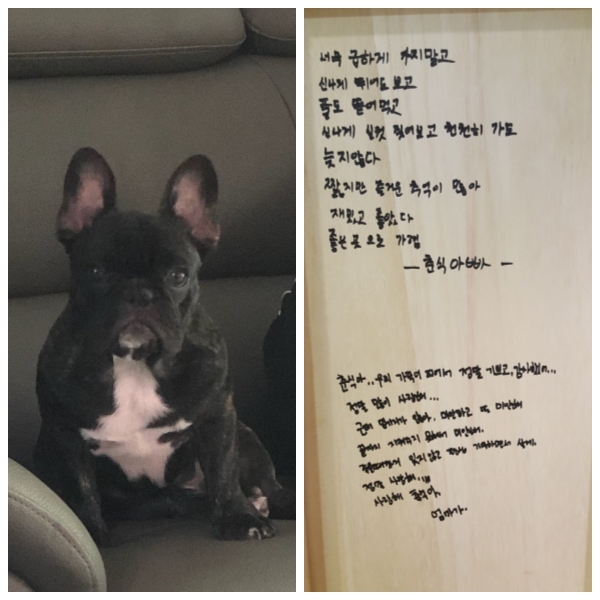 너무 급하게 가지말고
신나게 뛰어도 보고
풀도 뜯어먹고
신나게 실컷 짖어보고 천천히 가도
늦지않다
짧지만 즐거운 추억이 많아
재밌고 좋았다
좋은 곳으로 가렴
— 춘식 아빠가 —
춘식아.. 우리 가족이 되어줘서 정말 기쁘고, 감사했어...
정말 많이 사랑해...
미안하고 또 미안해
끝까지 지켜주지 못해서 미안해.
잊지않고 기억하면서 살게.
정말 사랑해..
사랑해 춘식아.
엄마가.